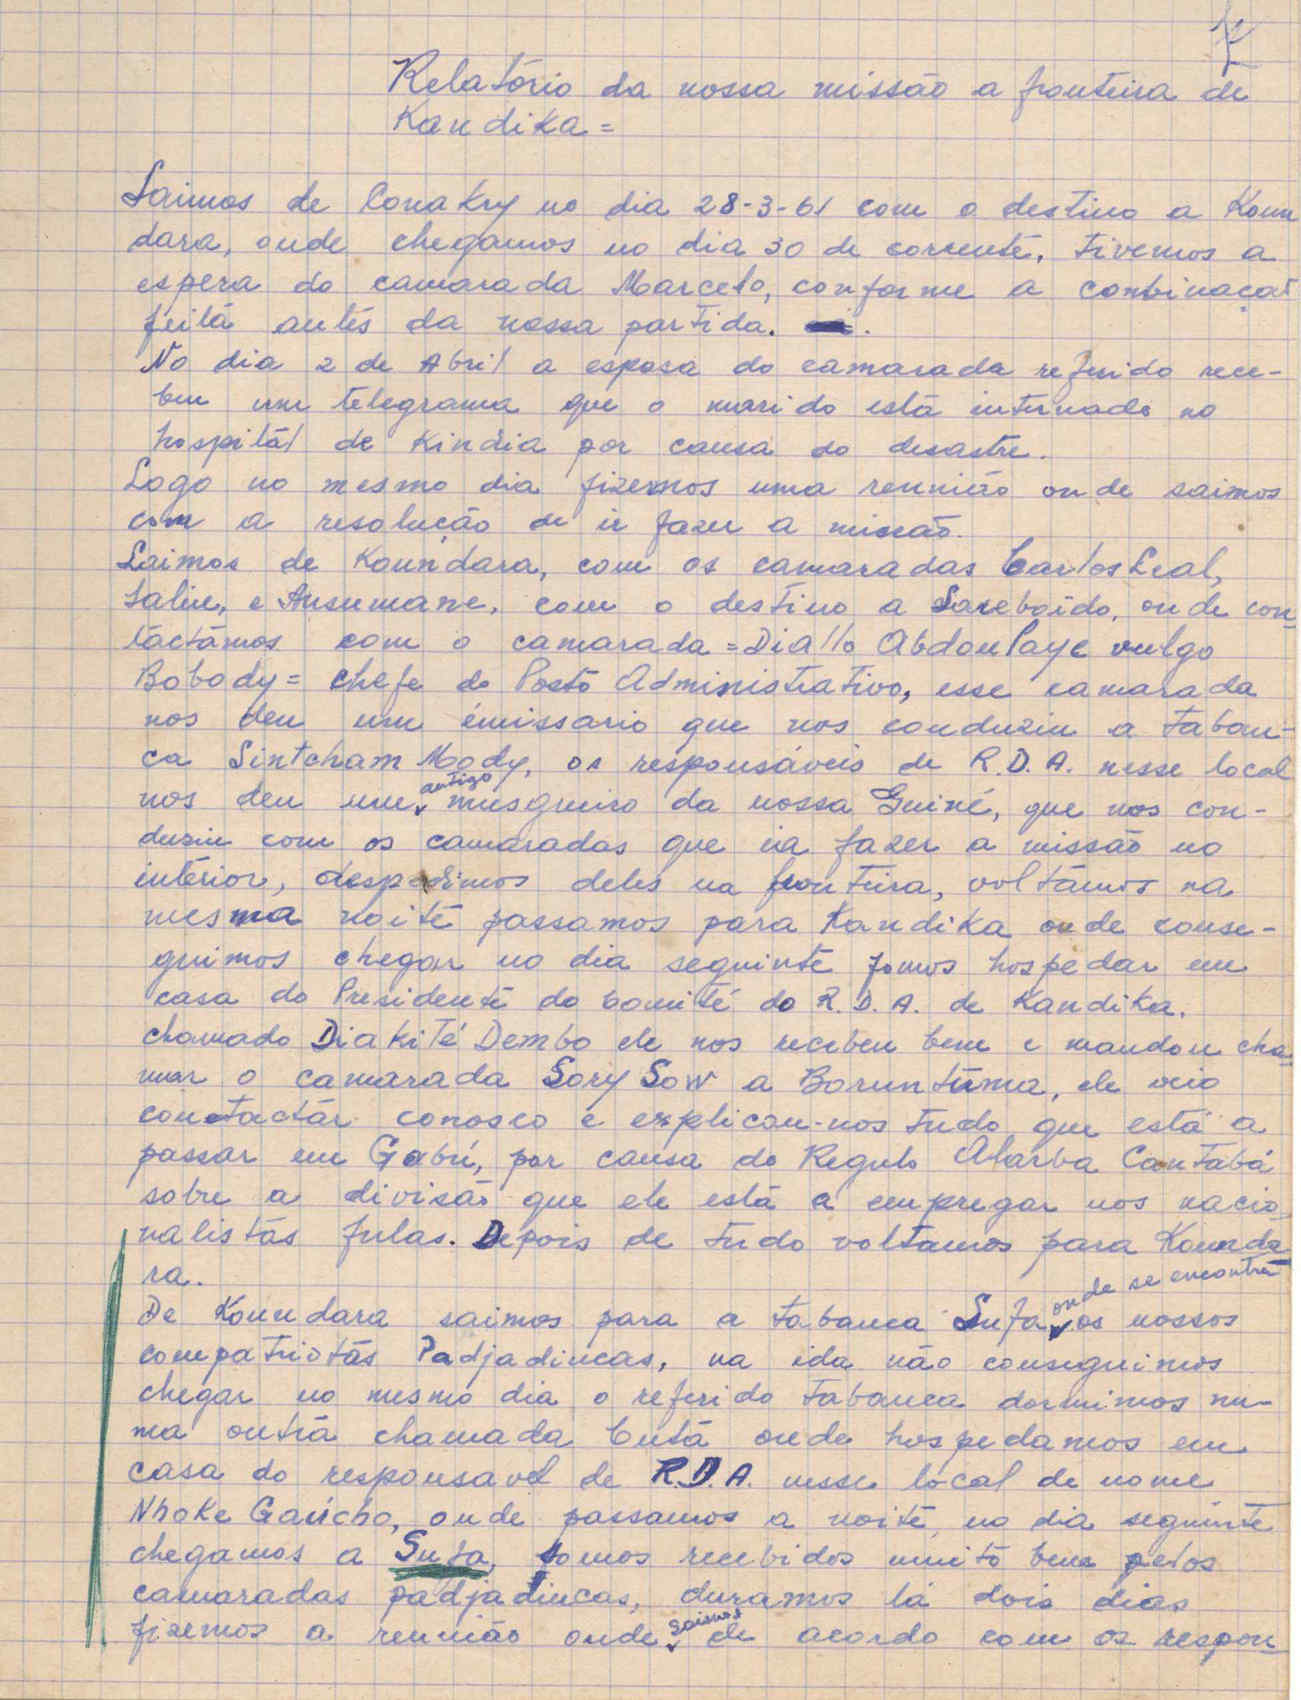 Relatório da nossa missão a fronteira de
Kandika =
Saimos de Conakry no dia 28-3-61 com o destino a Koun
dara, onde chegamos no dia 30 de corrente, tivemos a
espera do camarada Marcelo, conforme a conbinaçaõ
feitá antés da nossa partida.
No dia 2 de Abril a esposa do camarada referido rece-
beu um telegrama que o marido está internado no
hospitál de Kindia por causa do desastre.
Logo no mesmo dia fizemos uma reunião onde saimos
com a resolução de ir fazer a missaõ.
Saimos de Koundara, com os camaradas Carlos Leal,
Saliu, e Ansumane, com o destino a Sareboido, onde con-
táctámos com o camarada = Diallo Abdoulaye vulgo
Bobody = chefe do Posto Administrativo, esse camarada
nos deu um émissario que nos conduziu a taban-
ca Sintcham Mody, os responsáveis de R.D.A. nesse local
nos deu um antigo musgueiro da nossa Guiné, que nos con-
duziu com os camaradas que ia fazer a missão no
intérior, despedimos deles na fronteira, voltámos na
mesma noité passamos para Kandika onde conse-
guimos chegar no dia seguinte fomos hospedar em
casa do Presidente do Comité do R.D.A. de Kandika.
chamado Diakité Dembo ele nos recebeu bem e mandou cha-
mar o camarada Sory Sow a Boruntúma, ele veio
contactár conosco e explicou-nos tudo que está a
passar em Gabú, por causa do Regulo Alarba Cantabá
sobre a divisão que ele está a empregar nos nacio-
nalistás fulas. Depois de tudo voltamos para Kounda-
ra.
De Koundara saimos para a tabanca Sufa onde se encontra os nossos
compatriotás Padjadincas, na ida não conseguimos
chegar no mesmo dia o referido tabanca dormimos nu-
ma outrá chamada Cutá onde hospedamos em
casa do responsavel de R.D.A. nesse local de nome
Nhoke Gaúcho, onde passamos a noité, no dia seguinte
chegamos a Sufa, fomos recebidos muitó bem pelos
camaradas padjadincas, duramos lá dois dias
fizemos a reunião onde saimos de acordo com os respon